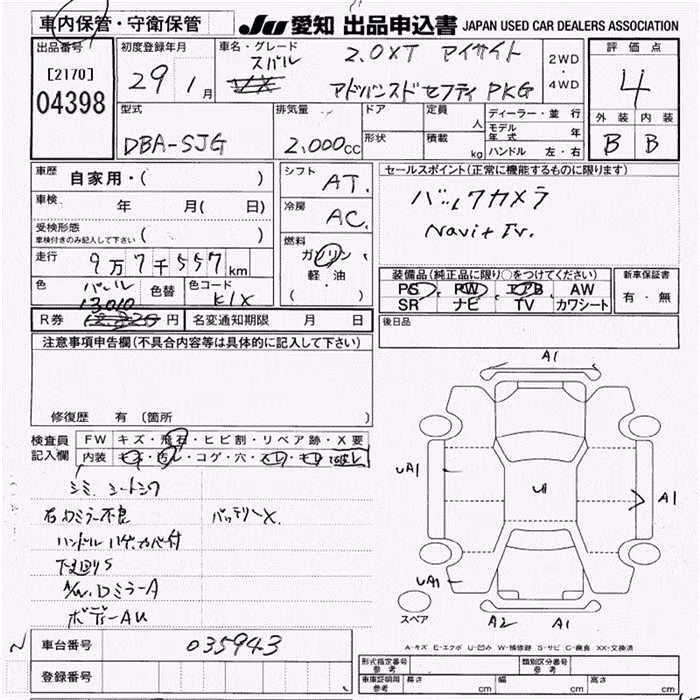 車内保管・守衛保管
JU 愛知 出品申込書 JAPAN USED CAR DEALERS ASSOCIATION
出品番号
[2170]
04398
初度登録年月
29年 1月
車名・グレード
スバル
2.0XT アイサイト
アドバンスドセフティPKG
2WD
・
4WD
評価点
4
外装 内装
B B
型式
DBA-SJG
排気量
2,000cc
ドア
形状
定員 人
積載 kg
ディーラー・並行
モデル年式 年
ハンドル 左・右
車歴 自家用・( )
車検 年 月( 日)
受検形態
車検付きのみ記入して下さい ( )
走行 9万7千557km
色 パール
色替
色コード K1X
シフト AT.
冷房 AC.
燃料
ガソリン
軽・油
( )
セールスポイント(正常に機能するものに限ります)
バックカメラ
Navi+TV.
装備品(純正品に限り○をつけてください)
PS PW エアB AW
SR ナビ TV カワシート
新車保証書
有・無
R券 13,010 円
名変通知期限 月 日
後日品
注意事項申告欄(不具合内容等は具体的に記入して下さい)
修復歴 有 (箇所 )
検査員記入欄
FW キズ・飛石・ヒビ割・リペア跡・X要
内装 キズ・汚レ・コゲ・穴・スレ・キレ・破レ
シミ シートシワ
右カミラー不良 バッテリーX.
ハンドル ハゲ.カバー付
下廻りS
A/W. Dミラー A
ボディーAU
A1
UA1
U1
A1
UA1
A2 A1
スペア
A-キズ E-エクボ U-凹み W-補修跡 S-サビ C-腐食 XX-交換済
車台番号 035943
登録番号
形式指定番号 参考
類別区分番号 参考
車庫証明用 参考 長さ cm 幅 cm 高さ cm